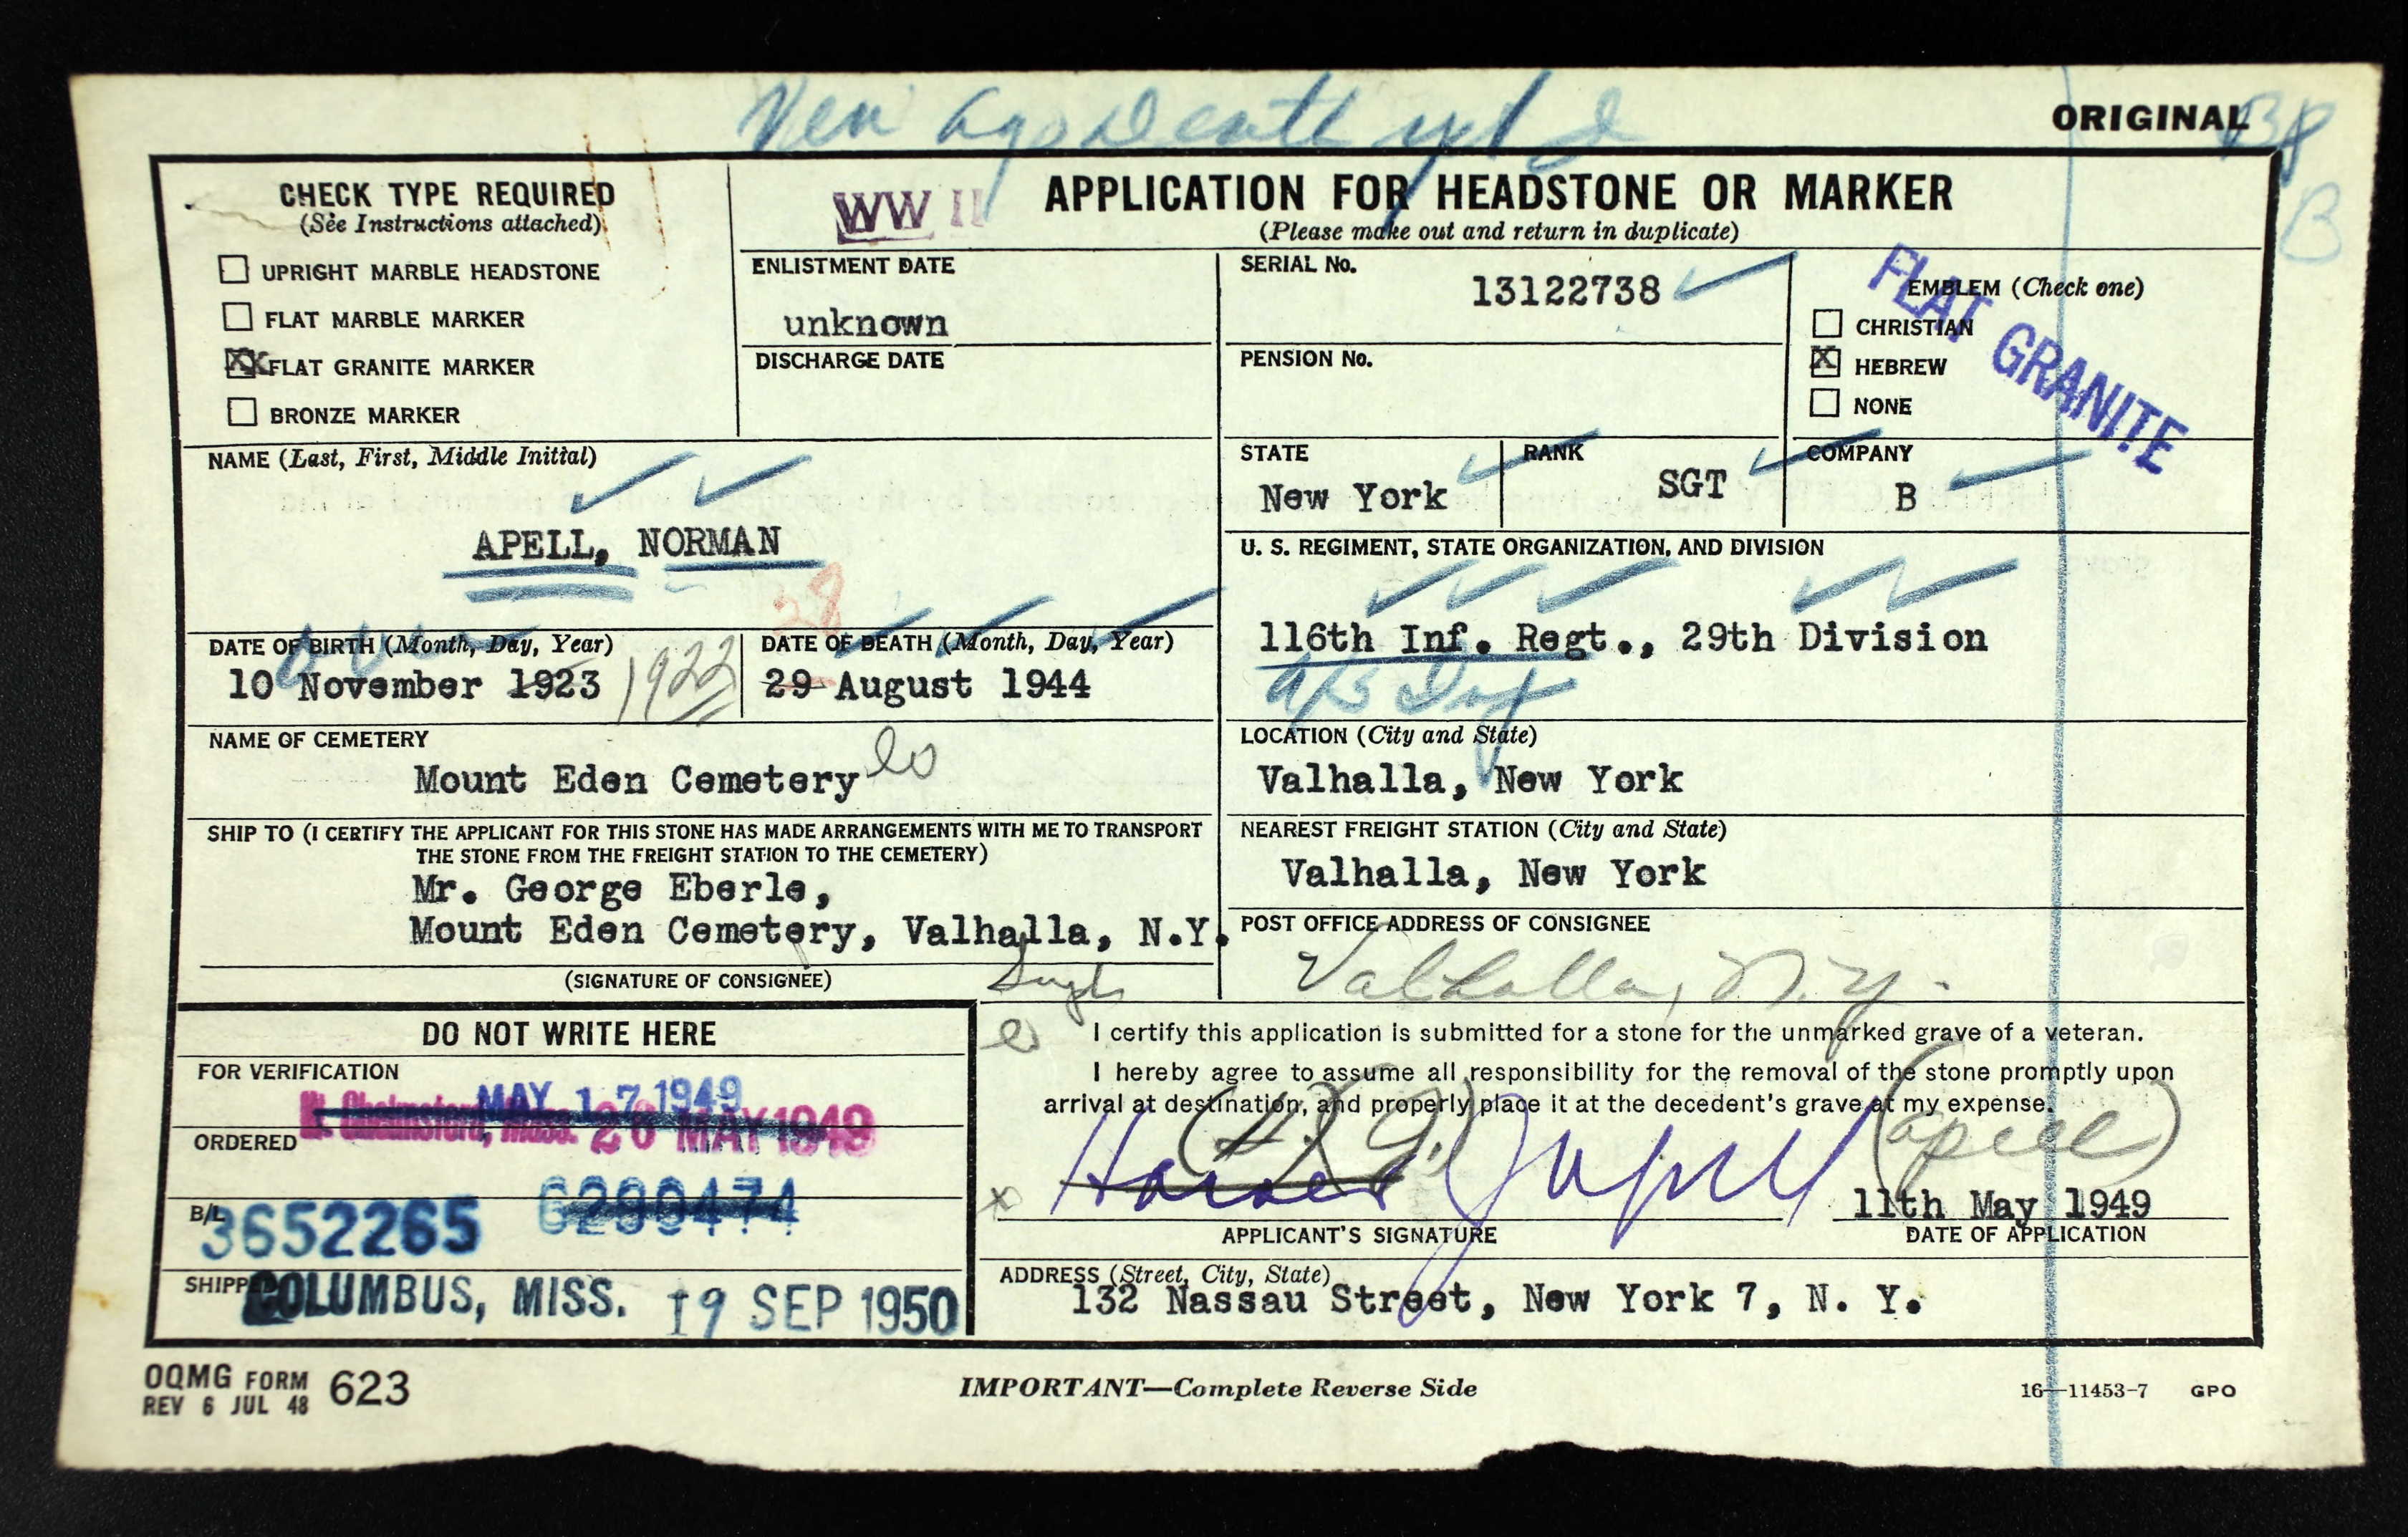 ORIGINAL
B
CHECK TYPE REQUIRED
(See Instructions attached)
UPRIGHT MARBLE HEADSTONE
FLAT MARBLE MARKER
XX FLAT GRANITE MARKER
BRONZE MARKER
WW II
APPLICATION FOR HEADSTONE OR MARKER
(Please make out and return in duplicate)
ENLISTMENT DATE
unknown
DISCHARGE DATE
SERIAL No.
13122738
PENSION No.
EMBLEM (Check one)
CHRISTIAN
X HEBREW
NONE
FLAT GRANITE
NAME (Last, First, Middle Initial)
APELL, NORMAN
STATE
New York
RANK
SGT
COMPANY
B
U. S. REGIMENT, STATE ORGANIZATION, AND DIVISION
116th Inf. Regt., 29th Division
DATE OF BIRTH (Month, Day, Year)
10 November 1923 1922
28
DATE OF DEATH (Month, Day, Year)
29 August 1944
NAME OF CEMETERY
Mount Eden Cemetery
LOCATION (City and State)
Valhalla, New York
SHIP TO (I CERTIFY THE APPLICANT FOR THIS STONE HAS MADE ARRANGEMENTS WITH ME TO TRANSPORT
THE STONE FROM THE FREIGHT STATION TO THE CEMETERY)
Mr. George Eberle,
Mount Eden Cemetery, Valhalla, N.Y.
(SIGNATURE OF CONSIGNEE)
NEAREST FREIGHT STATION (City and State)
Valhalla, New York
POST OFFICE ADDRESS OF CONSIGNEE
Valhalla, N.Y.
DO NOT WRITE HERE
FOR VERIFICATION
MAY 17 1949
ORDERED
Chelmsford, Mass. 26 MAY 1949
B/L
3652265 6299474
SHIPPED
COLUMBUS, MISS. 19 SEP 1950
I certify this application is submitted for a stone for the unmarked grave of a veteran.
I hereby agree to assume all responsibility for the removal of the stone promptly upon
arrival at destination, and properly place it at the decedent's grave at my expense.
(apell)
X
11th May 1949
APPLICANT'S SIGNATURE
DATE OF APPLICATION
ADDRESS (Street, City, State)
132 Nassau Street, New York 7, N. Y.
OQMG FORM 623
REV 6 JUL 48
IMPORTANT—Complete Reverse Side
16—11453-7 GPO